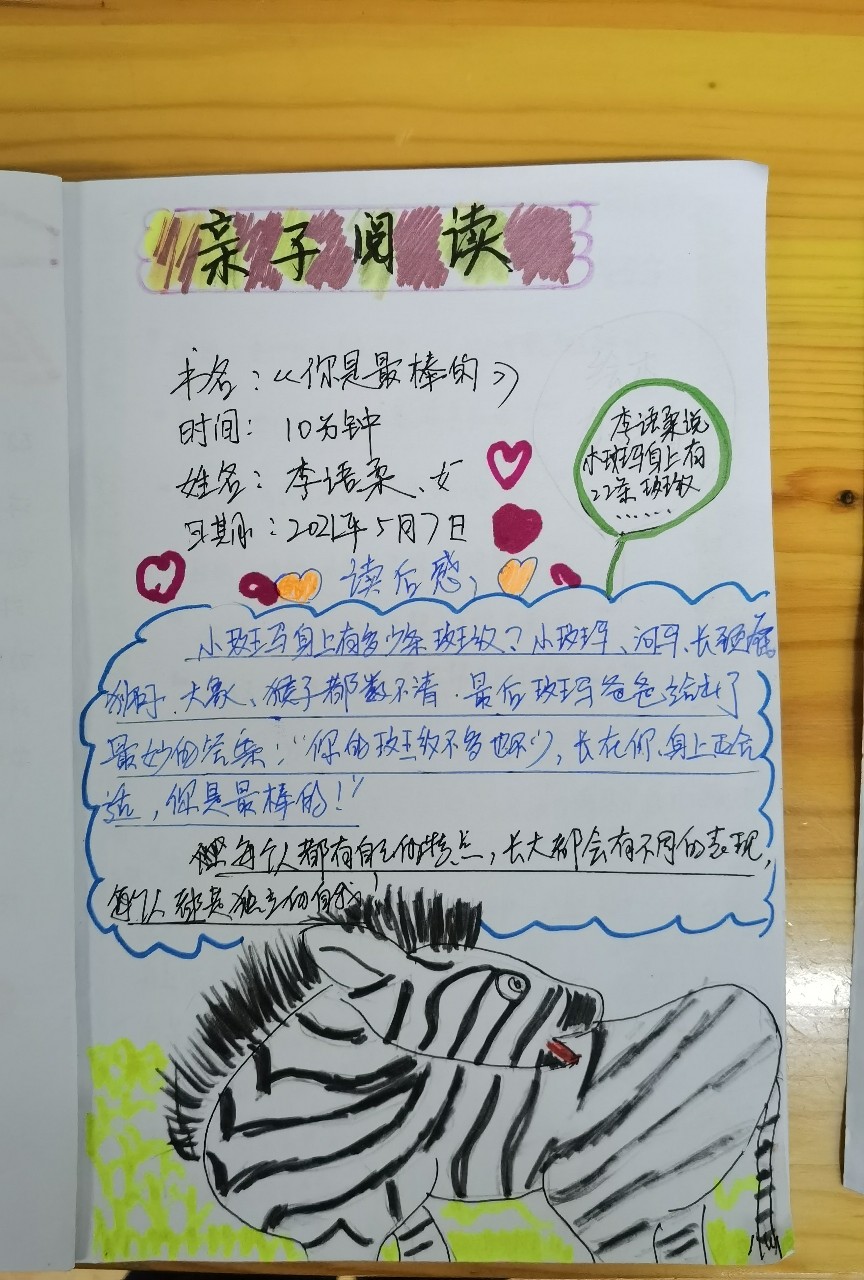 亲子阅读
书名：《你是最棒的》
时间：10分钟
姓名：李语柔、女
日期：2021年5月7日
李语柔说
小斑马身上有
22条斑纹
......
读后感
小斑马身上有多少条斑纹？小斑马、河马、长颈鹿
狮子、大象、猴子都数不清．最后斑马爸爸给出了
最妙的答案："你的斑纹不多也不少，长在你身上正合
适，你是最棒的！"
每个人都有自己的特点，长大都会有不同的表现，
每个人都是独立的自我！